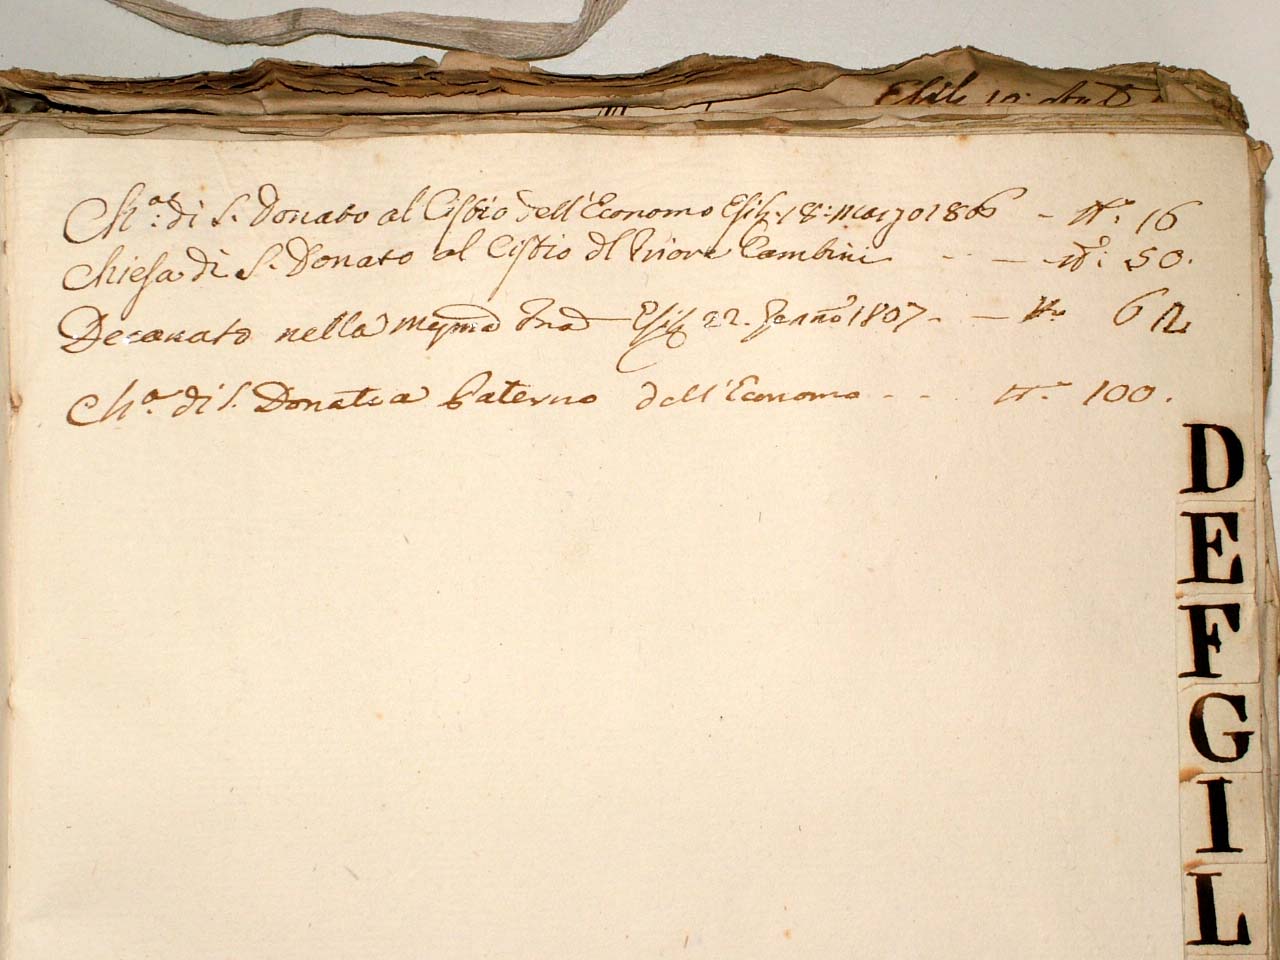 Esib. 10: Ag
Ch.ª di S. Donato al Cistio dell'Economo Esib. 18: Marzo 1806 - N.° 16
Chiesa di S. Donato al Cistio dl Priore Cambini - - - N.° 50.
Decanato nella Mesma Esib. 22. Genno° 1807 - - N.° 62
Ch.ª di S. Donato a Paterno dell'Economo - - N.° 100.
D
E
F
G
I
L